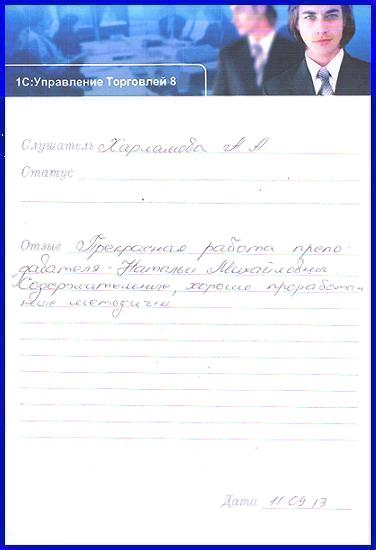 1С:Управление Торговлей 8
Слушатель Харламова А А
Статус
Отзыв Прекрасная работа препо-
давателя Натальи Михайловны.
Содержательные, хорошо проработан
ные методички
Дата 11 09 13